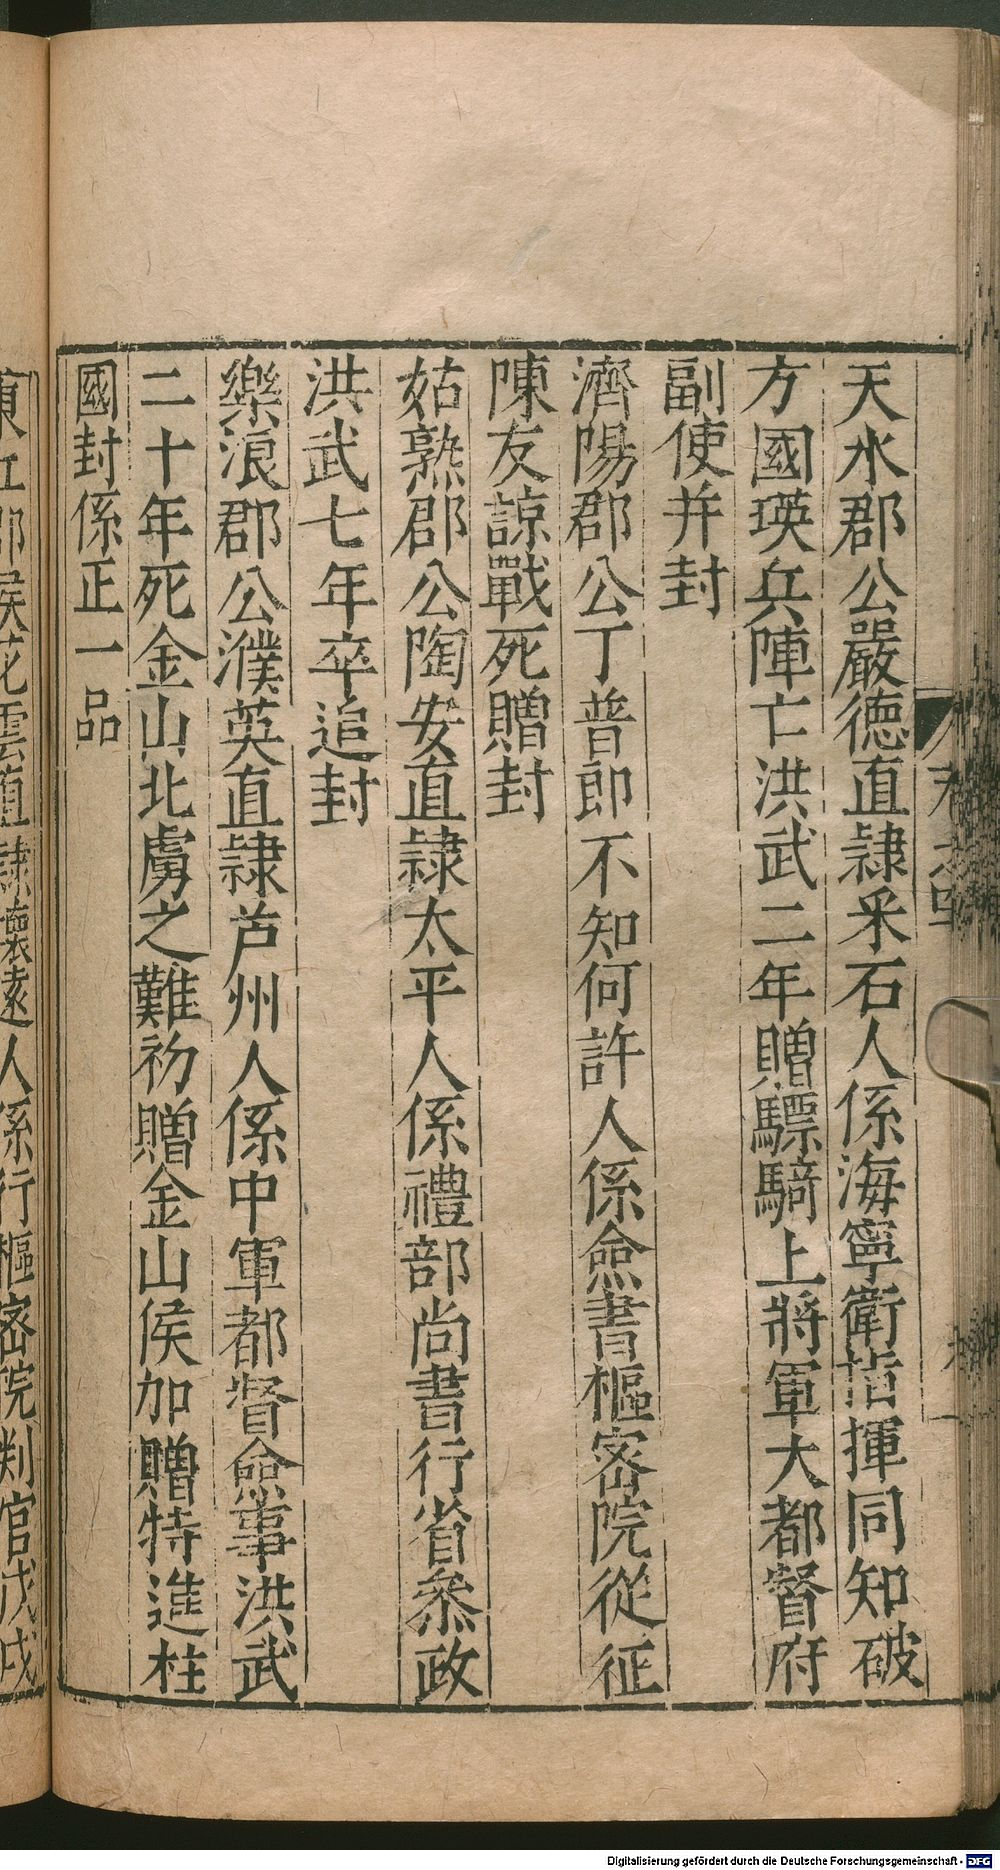 天水郡公嚴德直隷采石人係海寧衛指揮同知破
方國瑛兵陣亡洪武二年贈驃騎上將軍大都督府
副使并封
濟陽郡公丁普郎不知何許人係僉書樞密院從征
陳友諒戰死贈封
姑熟郡公陶安直隷太平人係禮部尚書行省叅政
洪武七年卒追封
樂浪郡公濮英直隷芦州人係中軍都督僉事洪武
二十年死金山北虜之難初贈金山侯加贈特進柱
國封係正一品
東丘郡侯花雲直隷懷遠人係行樞密院判官戊戌
Digitalisierung gefördert durch die Deutsche Forschungsgemeinschaft - DFG